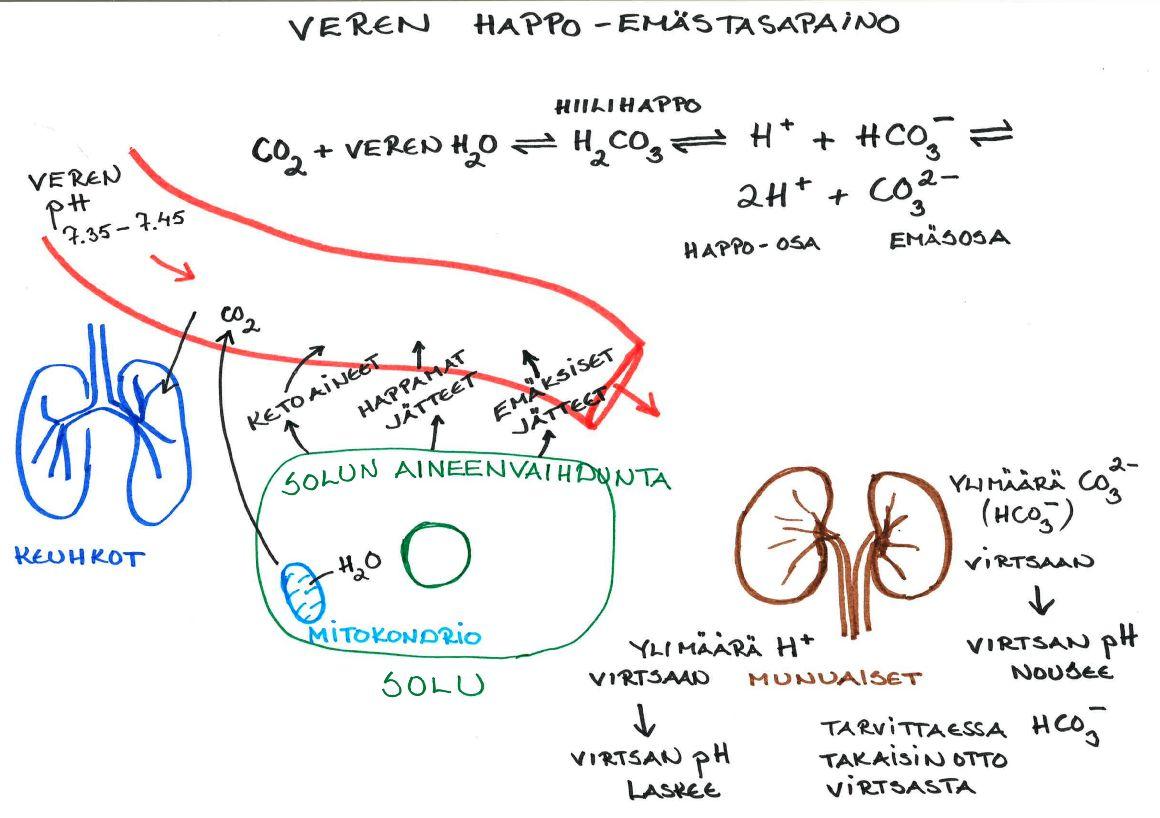 VEREN HAPPO-EMÄSTASAPAINO
HIILIHAPPO
CO₂ + VEREN H₂O ⇌ H₂CO₃ ⇌ H⁺ + HCO₃⁻ ⇌
2H⁺ + CO₃²⁻
HAPPO-OSA EMÄSOSA
VEREN
pH
7.35-7.45
CO₂
KETOAINEET
HAPPAMAT
JÄTTEET
EMÄKSISET
JÄTTEET
SOLUN AINEENVAIHDUNTA
KEUHKOT
H₂O
MITOKONDRIO
SOLU
YLIMÄÄRÄ CO₃²⁻
(HCO₃⁻)
VIRTSAAN
VIRTSAN pH
NOUSEE
YLIMÄÄRÄ H⁺
VIRTSAAN
MUNUAISET
VIRTSAN pH
LASKEE
TARVITTAESSA HCO₃⁻
TAKAISINOTTO
VIRTSASTA